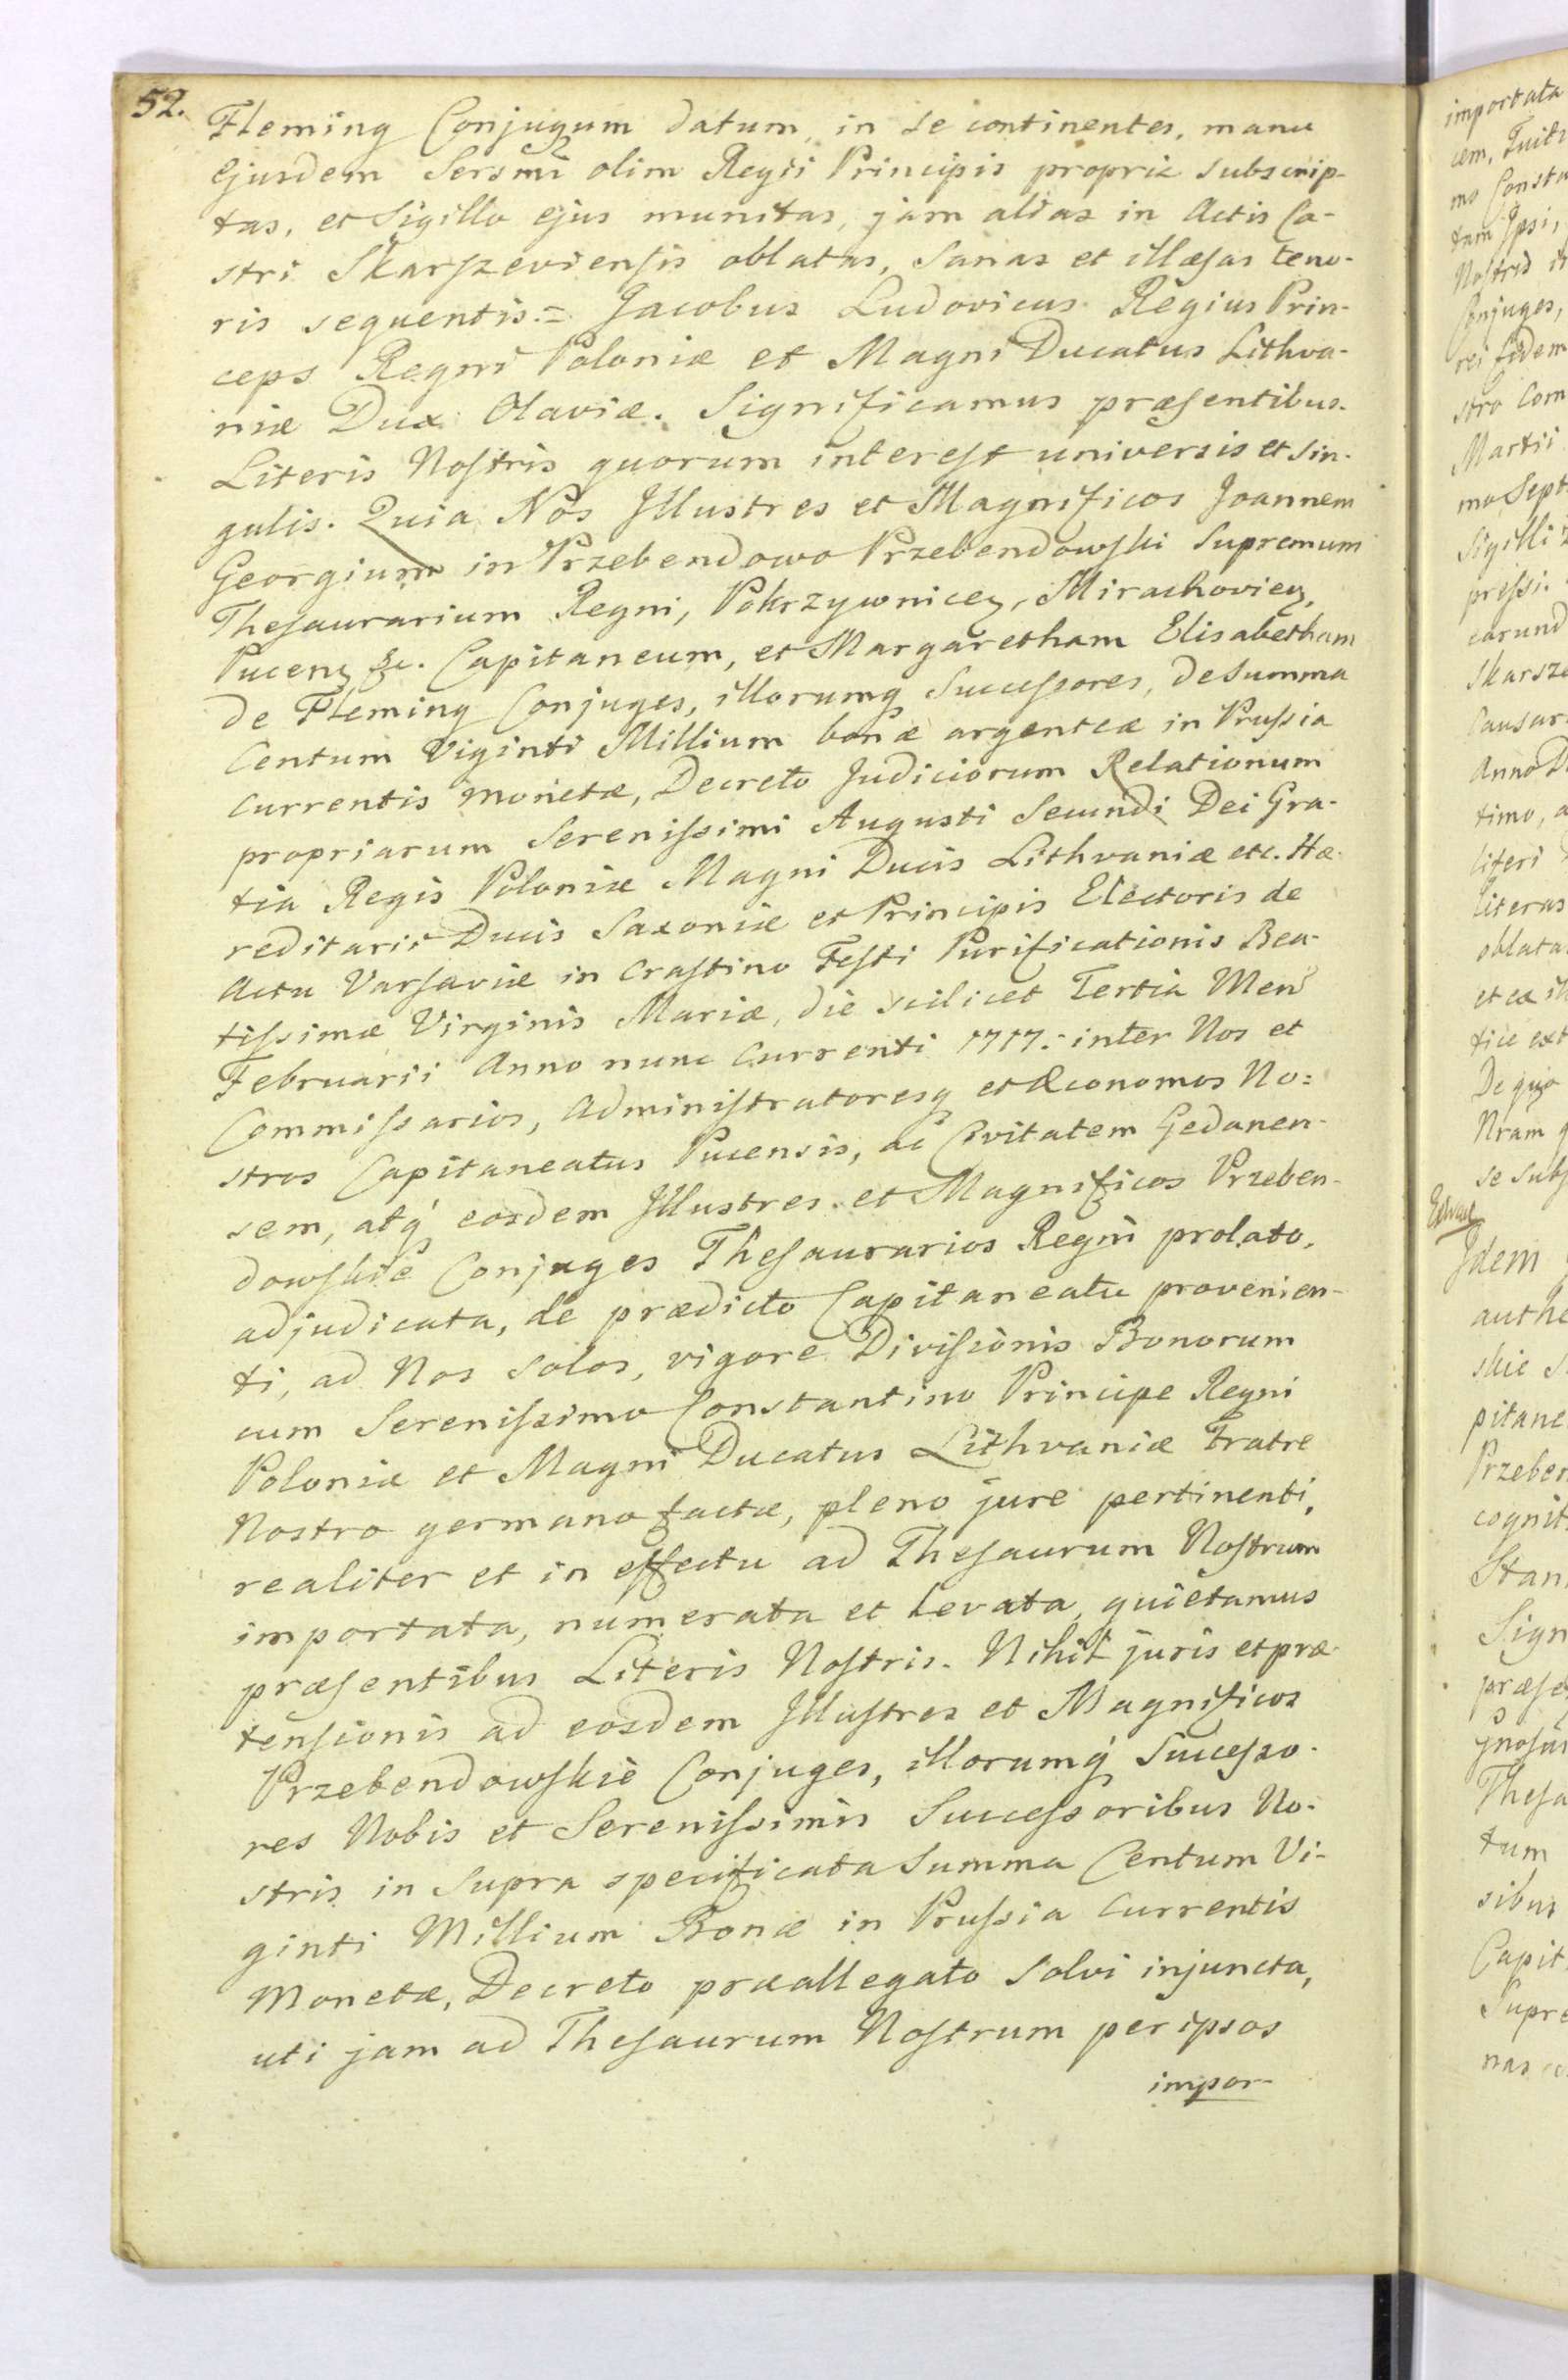 52.
Fleming Conjugum datum, in se continentes, manu
Ejusdem Sersmi olim Regii Principis propria subscrip-
tas, et Sigillo ejus munitas, jam alias in Actis Ca-
stri Skarszeviensis oblatas, Sanas et illæsas teno-
ris sequentis.= Jacobus Ludovicus Regius Prin-
ceps Regni Poloniæ et Magni Ducatus Lithva-
niæ Dux Olaviæ. Significamus præsentibus
Literis Nostris quorum interest universis et sin-
gulis. Quia Nos Jllustres et Magnificos Joannem
Georgium in Przebendowo Przebendowski Supremum
Thesaurarium Regni, Pokrzywnicen, Mirachovien,
Pucenz &c. Capitaneum, et Margaretham Elisabetham
de Fleming Conjuges, illorumq Successores, de Summa
Centum Viginti Millium bonæ argenteæ in Prussia
Currentis monetæ, Decreto Judiciorum Relationum
propriarum Serenissimi Augusti Secundi Dei Gra-
tia Regis Poloniæ Magni Ducis Lithvaniæ etc. Hæ-
reditarii Ducis Saxoniæ et Principis Electoris de
Actu Varsaviæ in Crastino Festi Purificationis Bea-
tissimæ Virginis Mariæ, die scilicet Tertia Mens
Februarii Anno nunc Currenti 1717. inter Nos et
Commissarios, Administratoresq et Œconomos No=
stros Capitaneatus Pucensis, ac Civitatem Gedanen-
sem, atq eosdem Jllustres et Magnificos Przeben-
dowskie Conjuges Thesaurarios Regni prolato,
adjudicata, de prædicto Capitaneatu provenien-
ti, ad Nos solos, vigore Divisionis Bonorum
cum Serenissimo Constantino Principe Regni
Poloniæ et Magni Ducatus Lithvaniæ Fratre
Nostro germano factæ, pleno jure pertinenti,
realiter et in effectu ad Thesaurum Nostrum
importata, numerata et levata, quietamus
præsentibus Literis Nostris. Nihil juris et præ-
tensionis ad eosdem Jllustres et Magnificos
Przebendowskie Conjuges, illorumq Successo-
res Nobis et Serenissimis Successoribus No-
stris in Supra specificata Summa Centum Vi-
ginti Millium Bonæ in Prussia Currentis
Monetæ, Decreto præallegato Solvi injuncta,
uti jam ad Thesaurum Nostrum per ipsos
impor-
importata
Nostris
Conjuges,
Martii
Sigilli
pressi.
Anno
timo, a
literi
Literas
oblata
De quo
Nram
se subs
Jdem
authe
skie
pitane
Przeben
cognit
Stan
Sign
præse
Thesa
tum
sibus
Capit
Supre
nas